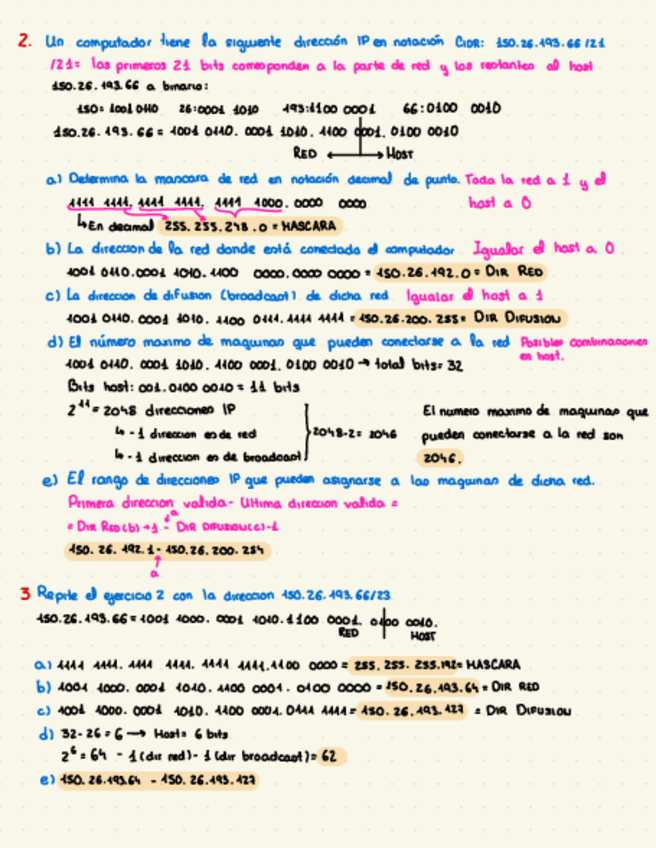 2. Un computador tiene la siguiente dirección IP en notación CIDR: 150.26.193.66 /21
/21= los primeros 21 bits corresponden a la parte de red y los restantes al host
150.26.193.66 a binario:
150= 1001 0110 26:0001 1010 193:1100 0001 66:0100 0010
150.26.193.66 = 1001 0110. 0001 1010. 1100 0001. 0100 0010
RED ← → HOST
a) Determina la mascara de red en notación decimal de punto. Toda la red a 1 y el
1111 1111. 1111 1111. 1111 1000. 0000 0000 host a 0
↳ En decimal 255.255.248.0 = MASCARA
b) La direccion de la red donde está conectado el computador. Igualar el host a 0
1001 0110.0001 1010. 1100 0000. 0000 0000 = 150.26.192.0 = DIR RED
c) La direccion de difusion (broadcast) de dicha red Igualar el host a 1
1001 0110. 0001 1010. 1100 0111. 1111 1111 = 150.26.200.255= DIR DIFUSION
d) El número maximo de maquinas que pueden conectarse a la red Posibles combinaciones
en host.
1001 0110. 0001 1010. 1100 0001. 0100 0010 → total bits= 32
Bits host: 001.0100 0010 = 11 bits
2¹¹ = 2048 direcciones IP El numero maximo de maquinas que
↳ -1 direccion es de red 2048-2= 2046 pueden conectarse a la red son
↳ -1 direccion es de broadcast 2046.
e) El rango de direcciones IP que pueden asignarse a las maquinas de dicha red.
Primera direccion valida - Ultima direccion valida =
a
= DIR RED(b) +1 - DIR DIFUSION(c)-1
150. 26. 192.1 - 150.26.200.254
a
3 Repite el ejercicio 2 con la direccion 150.26.193.66/23
150.26.193.66 = 1001 1000. 0001 1010.1100 0001. 0100 0010.
RED HOST
a) 1111 1111. 1111 1111. 1111 1111.1100 0000 = 255. 255. 255.192= MASCARA
b) 1001 1000. 0001 1010. 1100 0001. 0100 0000 = 150.26.193.64 = DIR RED
c) 1001 1000. 0001 1010. 1100 0001. 0111 1111 = 150.26.193.127 = DIR DIFUSION
d) 32-26 = 6 → Host= 6 bits
2⁶ = 64 - 1 (dir red) - 1 (dir broadcast)= 62
e) 150. 26.193.64 - 150.26.193.127